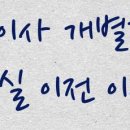 이사 개별
실 이전 이